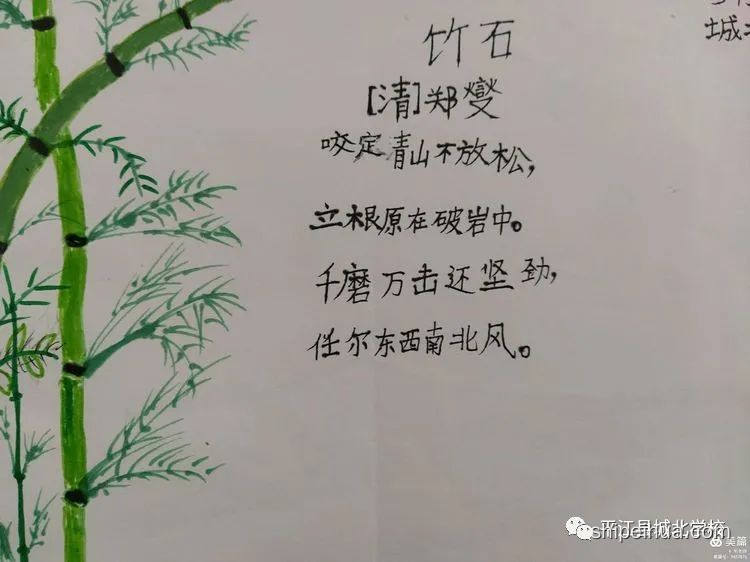 竹石
[清]郑燮
咬定青山不放松，
立根原在破岩中。
千磨万击还坚劲，
任尔东西南北风。
城北
平江县城北学校
shipeihua.com
美篇